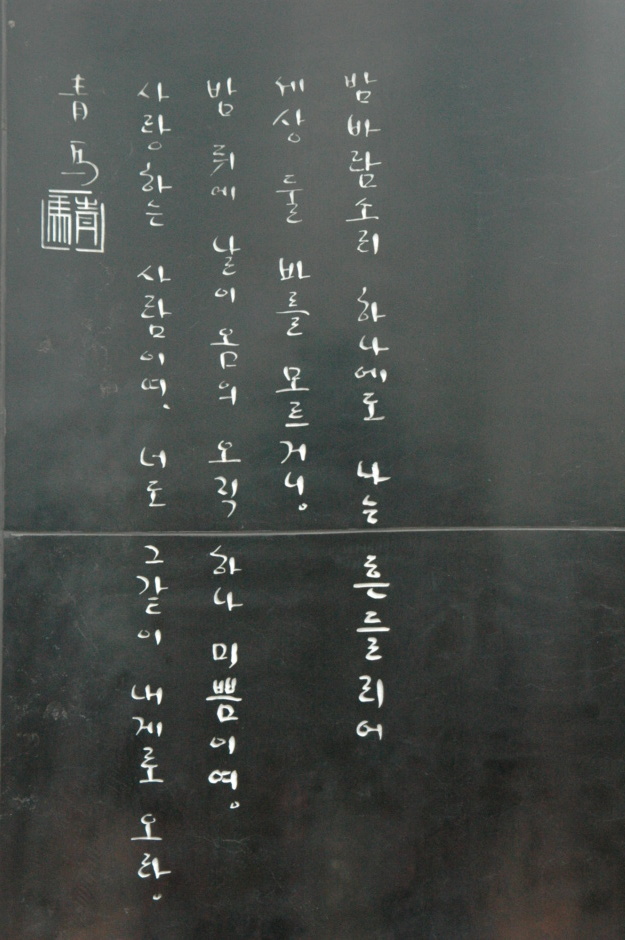 밤바람소리 하나에도 나는 흔들리어
세상 둘 바를 모르거니.
밤 뒤에 날이 옴의 오직 하나 미쁨이여.
사랑하는 사람이여. 너도 그같이 내게로 오라.
青馬
青馬